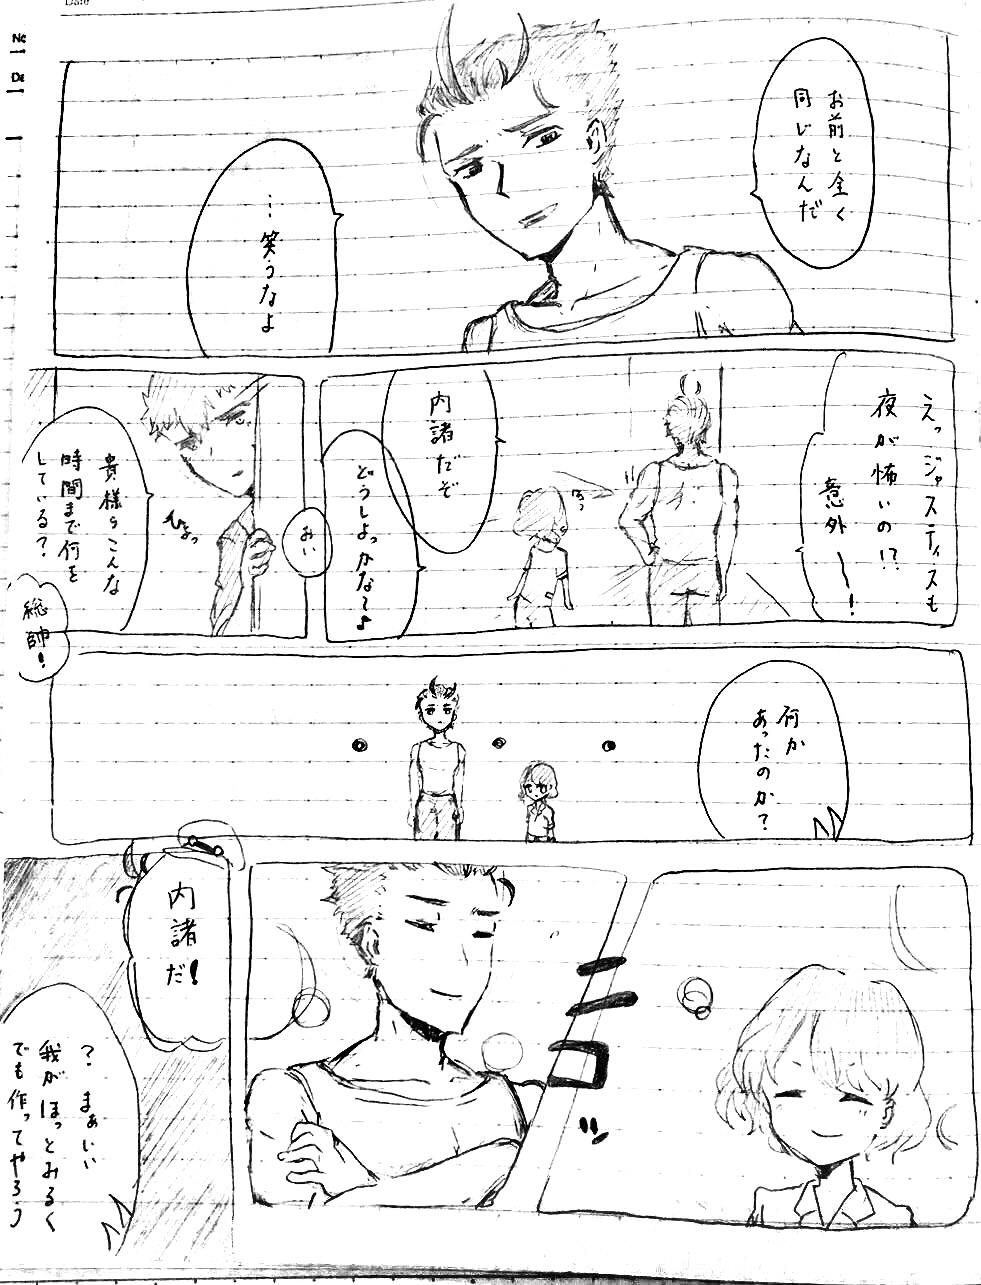 Date
No
Da
お前と全く
同じなんだ
…笑うなよ
えっジャスティスも
夜が怖いの!?
意外〜!
内諸だぞ
どうしよっかな〜♪
おい
貴様らこんな
時間まで何を
している?
総帥!
何か
あったのか?
ニコッ
内諸
だ!
? まぁいい
我がほっとみるく
でも作ってやろう